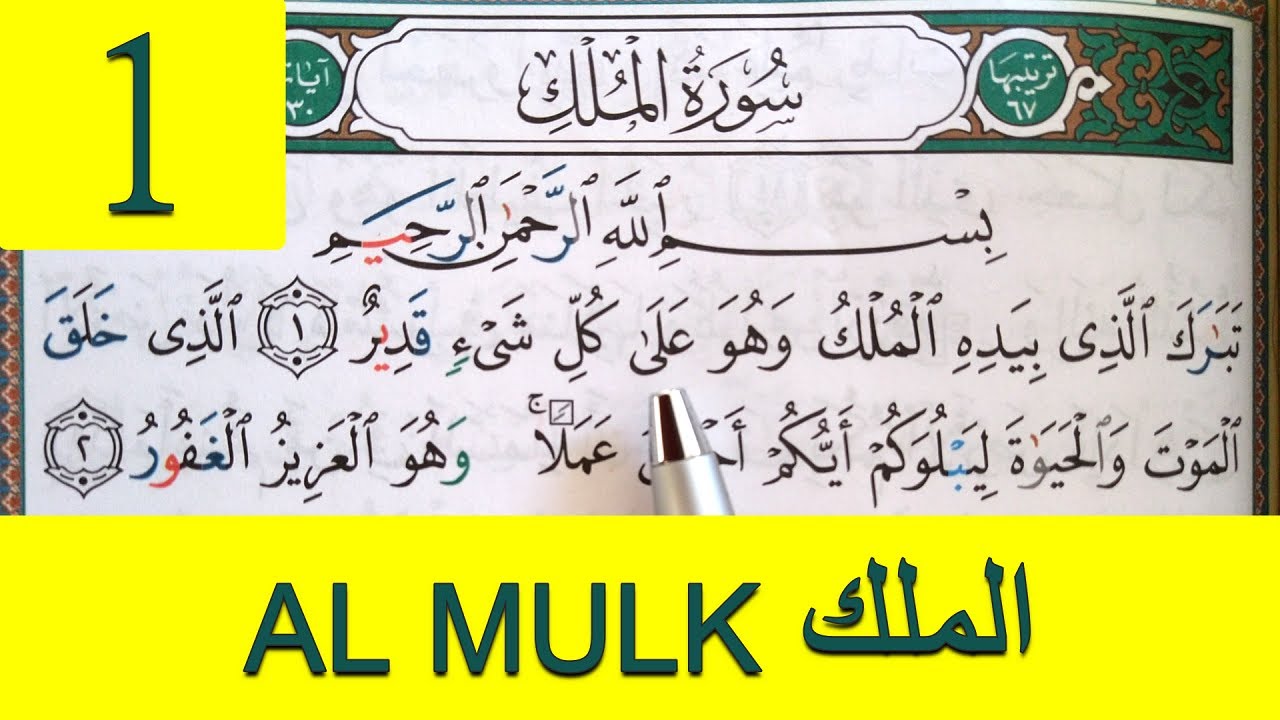 1
ترتيبها
٦٧
سُورَةُ الْمُلْكِ
٣٠
بِسْمِ ٱللَّهِ ٱلرَّحْمَٰنِ ٱلرَّحِيمِ
تَبَٰرَكَ ٱلَّذِى بِيَدِهِ ٱلْمُلْكُ وَهُوَ عَلَىٰ كُلِّ شَىْءٍ قَدِيرٌ ١ ٱلَّذِى خَلَقَ
ٱلْمَوْتَ وَٱلْحَيَوٰةَ لِيَبْلُوَكُمْ أَيُّكُمْ عَمَلًا ۚ وَهُوَ ٱلْعَزِيزُ ٱلْغَفُورُ ٢
AL MULK الملك